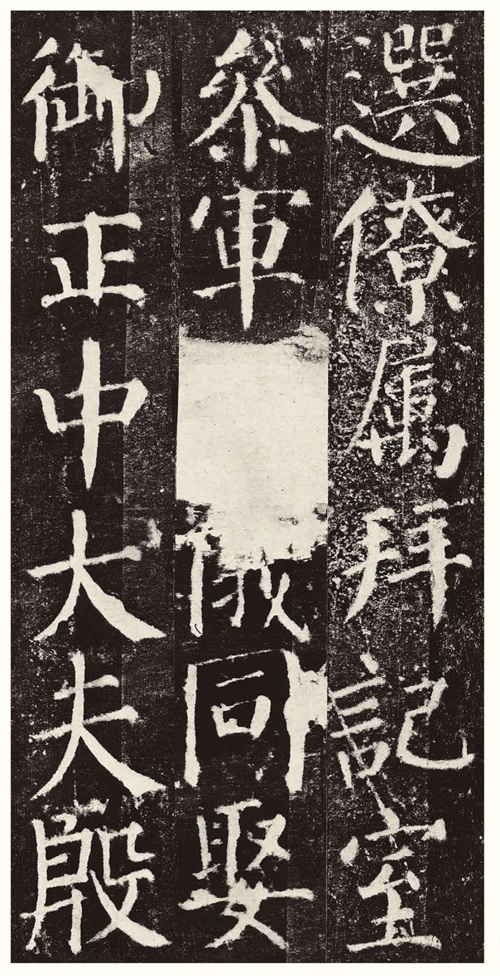 選僚属拜記室
參軍儀同娶
御正中大夫殷